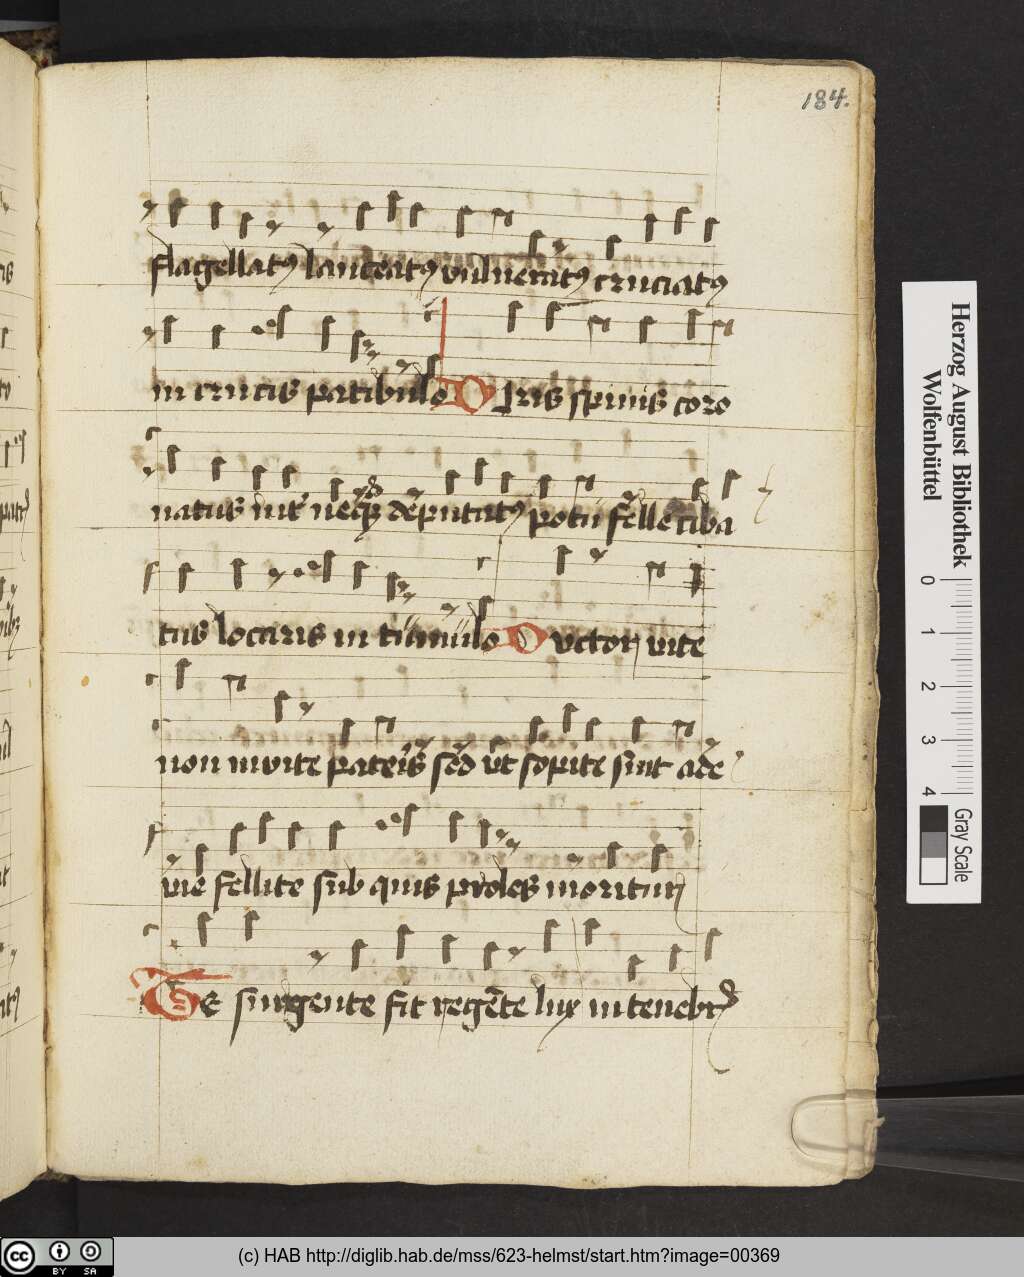 184.
flagellatꝰ lanceatꝰ vulneratꝰ cruciatꝰ
in crucis patibulo Diris spinis coro
natus int̕ neq̄ꝫ dēputatꝰ potū felle ciba
tus locaris in tumulo Ductor vite
non invite pateris sed vt sopite sint ade
vie fellite sub quis proles moritur
Te surgente fit regēte lux in tenebr
Herzog August Bibliothek
Wolfenbüttel
0 1 2 3 4
Gray Scale
cc BY SA
(c) HAB http://diglib.hab.de/mss/623-helmst/start.htm?image=00369